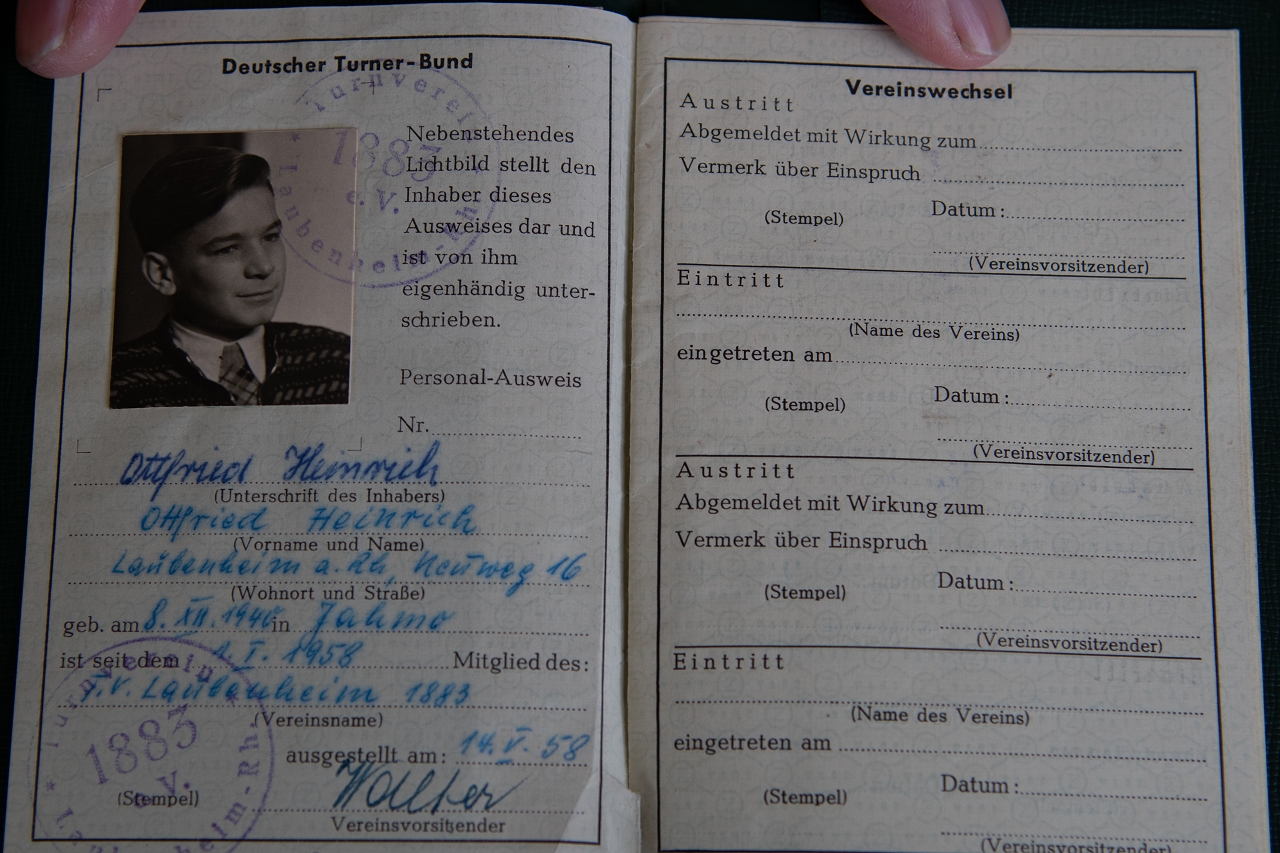 Deutscher Turner-Bund
Turnverein
1883
e. V.
Laubenheim-Rh.
Nebenstehendes
Lichtbild stellt den
Inhaber dieses
Ausweises dar und
ist von ihm
eigenhändig unter-
schrieben.
Personal-Ausweis
Nr.
Ottfried Heinrich
(Unterschrift des Inhabers)
Ottfried Heinrich
(Vorname und Name)
Laubenheim a. Rh, Neuweg 16
(Wohnort und Straße)
geb. am 8. XII. 1940 in Jahmo
ist seit dem 1. I. 1958 Mitglied des:
T.V. Laubenheim 1883
(Vereinsname)
ausgestellt am: 14. V. 58
Turnverein
1883
e. V.
Laubenheim-Rh.
(Stempel)
Walter
Vereinsvorsitzender
Vereinswechsel
Austritt
Abgemeldet mit Wirkung zum
Vermerk über Einspruch
(Stempel) Datum:
(Vereinsvorsitzender)
Eintritt
(Name des Vereins)
eingetreten am
Datum:
(Stempel)
(Vereinsvorsitzender)
Austritt
Abgemeldet mit Wirkung zum
Vermerk über Einspruch
(Stempel) Datum:
(Vereinsvorsitzender)
Eintritt
(Name des Vereins)
eingetreten am
Datum:
(Stempel)
(Vereinsvorsitzender)